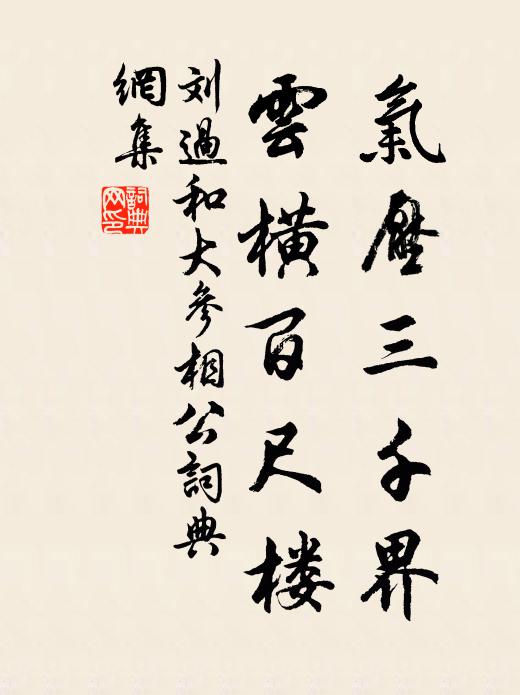 氣壓三千界
雲橫百尺楼
刘過和大參相公詞典
網集
詞典
网印